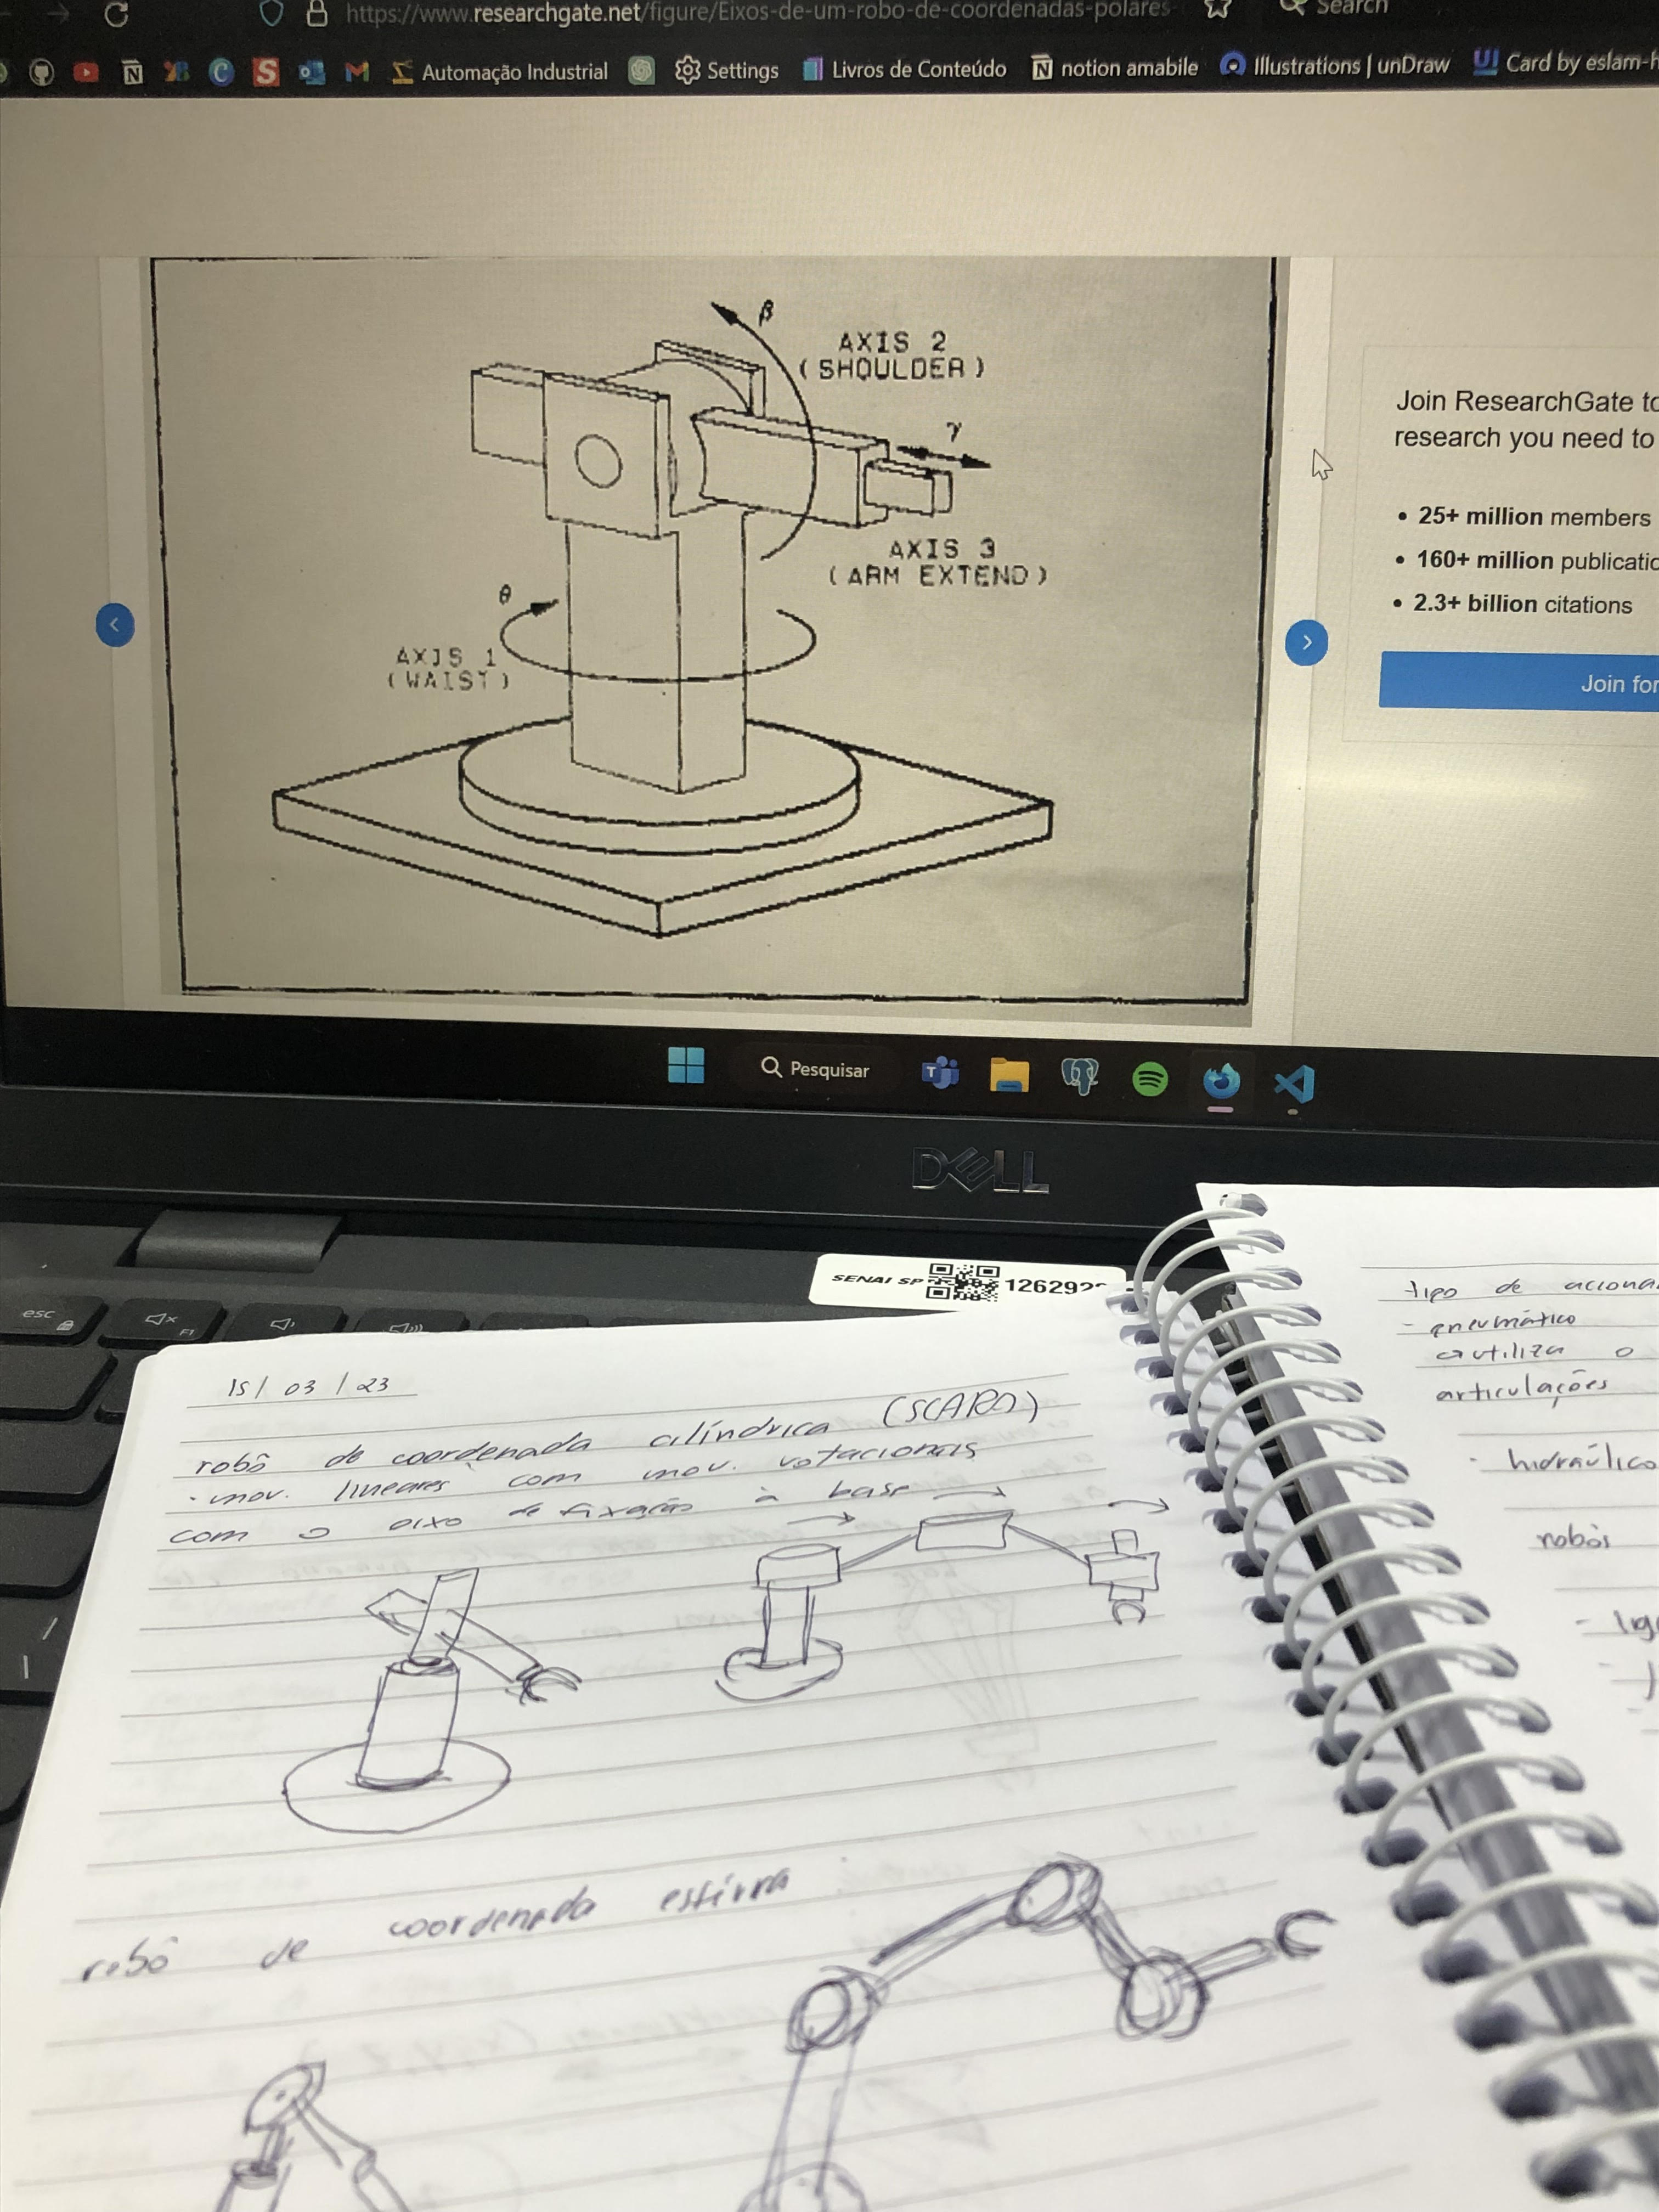 https://www.researchgate.net/figure/Eixos-de-um-robo-de-coordenadas-polares-
Search
Automação Industrial
Settings
Livros de Conteúdo
notion amabile
Illustrations | unDraw
Card by eslam-h
β
AXIS 2
(SHOULDER)
γ
AXIS 3
(ARM EXTEND)
θ
AXIS 1
(WAIST)
Join ResearchGate to
research you need to
• 25+ million members
• 160+ million publicatio
• 2.3+ billion citations
Join for
Pesquisar
DELL
SENAI SP
126292
esc
F1
15/03/23
robô de coordenada cilíndrica (SCARA)
· mov. lineares com mov. rotacionais
com o eixo de fixação à base
robô de coordenada esférra
tipo de aciona
- pneumático
utiliza o
articulações
· hidráulico
robôs